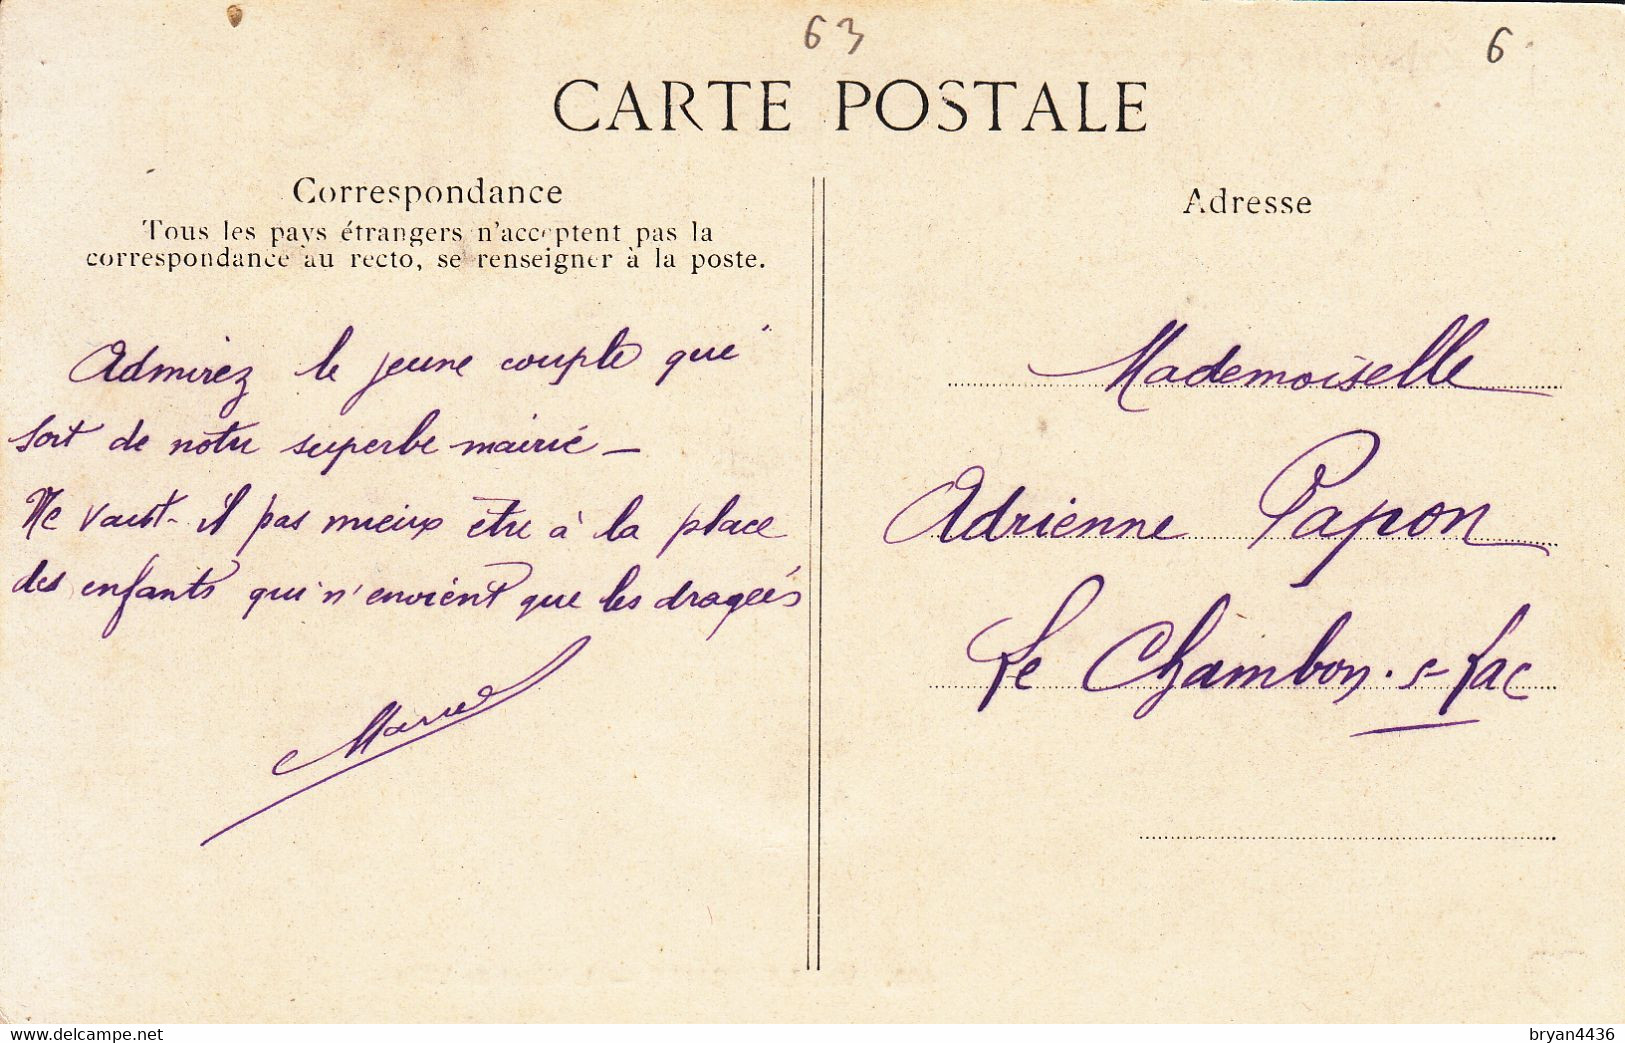 63
6
CARTE POSTALE
Correspondance
Tous les pays étrangers n'acceptent pas la
correspondance au recto, se renseigner à la poste.
Admirez le jeune couple qui
sort de notre superbe mairie -
Ne vaut-il pas mieux être à la place
des enfants qui n'envient que les dragées
Marcel
Adresse
Mademoiselle
Adrienne Papon
Le Chambon-s-Lac
delcampe.net
bryan4436